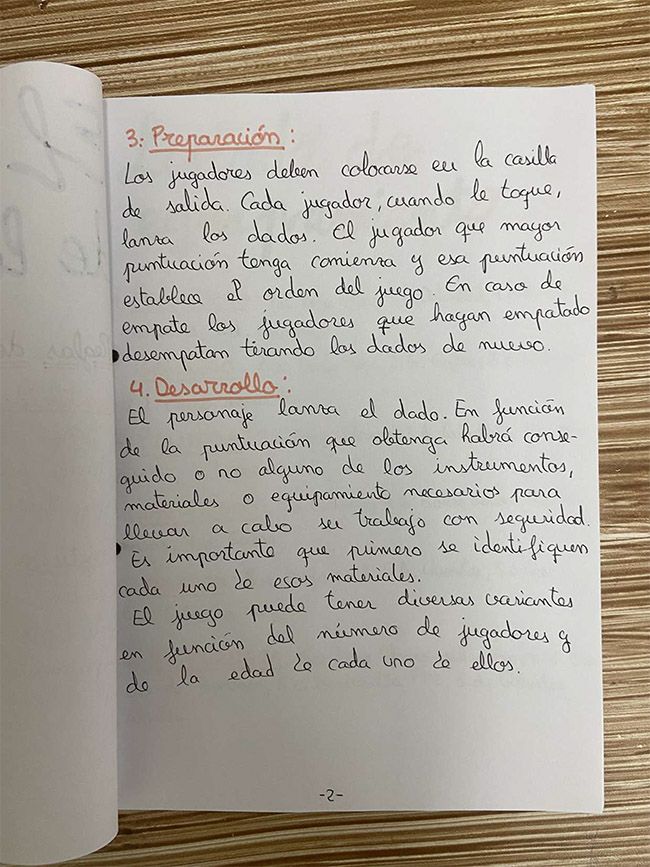 3. Preparación:
Los jugadores deben colocarse en la casilla
de salida. Cada jugador, cuando le toque,
lanza los dados. El jugador que mayor
puntuación tenga comienza y esa puntuación
establece el orden del juego. En caso de
empate los jugadores que hayan empatado
desempatan tirando los dados de nuevo.
4. Desarrollo:
El personaje lanza el dado. En función
de la puntuación que obtenga habrá conse-
guido o no alguno de los instrumentos,
materiales o equipamiento necesarios para
llevar a cabo su trabajo con seguridad.
Es importante que primero se identifiquen
cada uno de esos materiales.
El juego puede tener diversas variantes
en función del número de jugadores y
de la edad de cada uno de ellos.
-2-